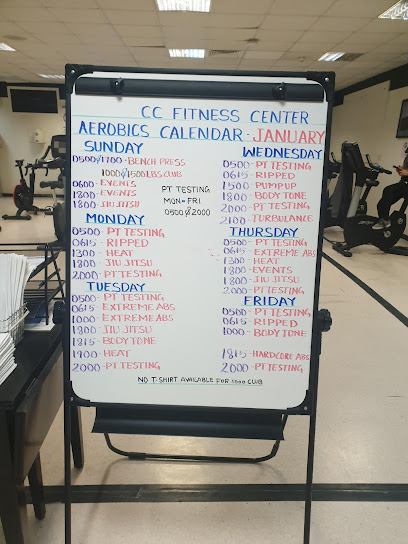 CC FITNESS CENTER
AEROBICS CALENDAR - JANUARY
SUNDAY
0500/1700 - BENCH PRESS
1000/1500 LBS CLUB
0600 - EVENTS
1800 - EVENTS
1800 - JIU JITSU
PT TESTING
MON - FRI
0500 & 2000
MONDAY
0500 - PT TESTING
0615 - RIPPED
1300 - HEAT
1800 - JIU JITSU
2000 - PT TESTING
TUESDAY
0500 - PT TESTING
0615 - EXTREME ABS
1000 - EXTREME ABS
1800 - JIU JITSU
1815 - BODY TONE
1900 - HEAT
2000 - PT TESTING
WEDNESDAY
0500 - PT TESTING
0615 - RIPPED
1500 - PUMP UP
1800 - BODY TONE
2000 - PT TESTING
2100 - TURBULANCE
THURSDAY
0500 - PT TESTING
0615 - EXTREME ABS
1300 - HEAT
1800 - EVENTS
1800 - JIU JITSU
2000 - PT TESTING
FRIDAY
0500 - PT TESTING
0615 - RIPPED
1000 - BODY TONE
1815 - HARDCORE ABS
2000 - PT TESTING
NO T-SHIRT AVAILABLE FOR 1000 CLUB